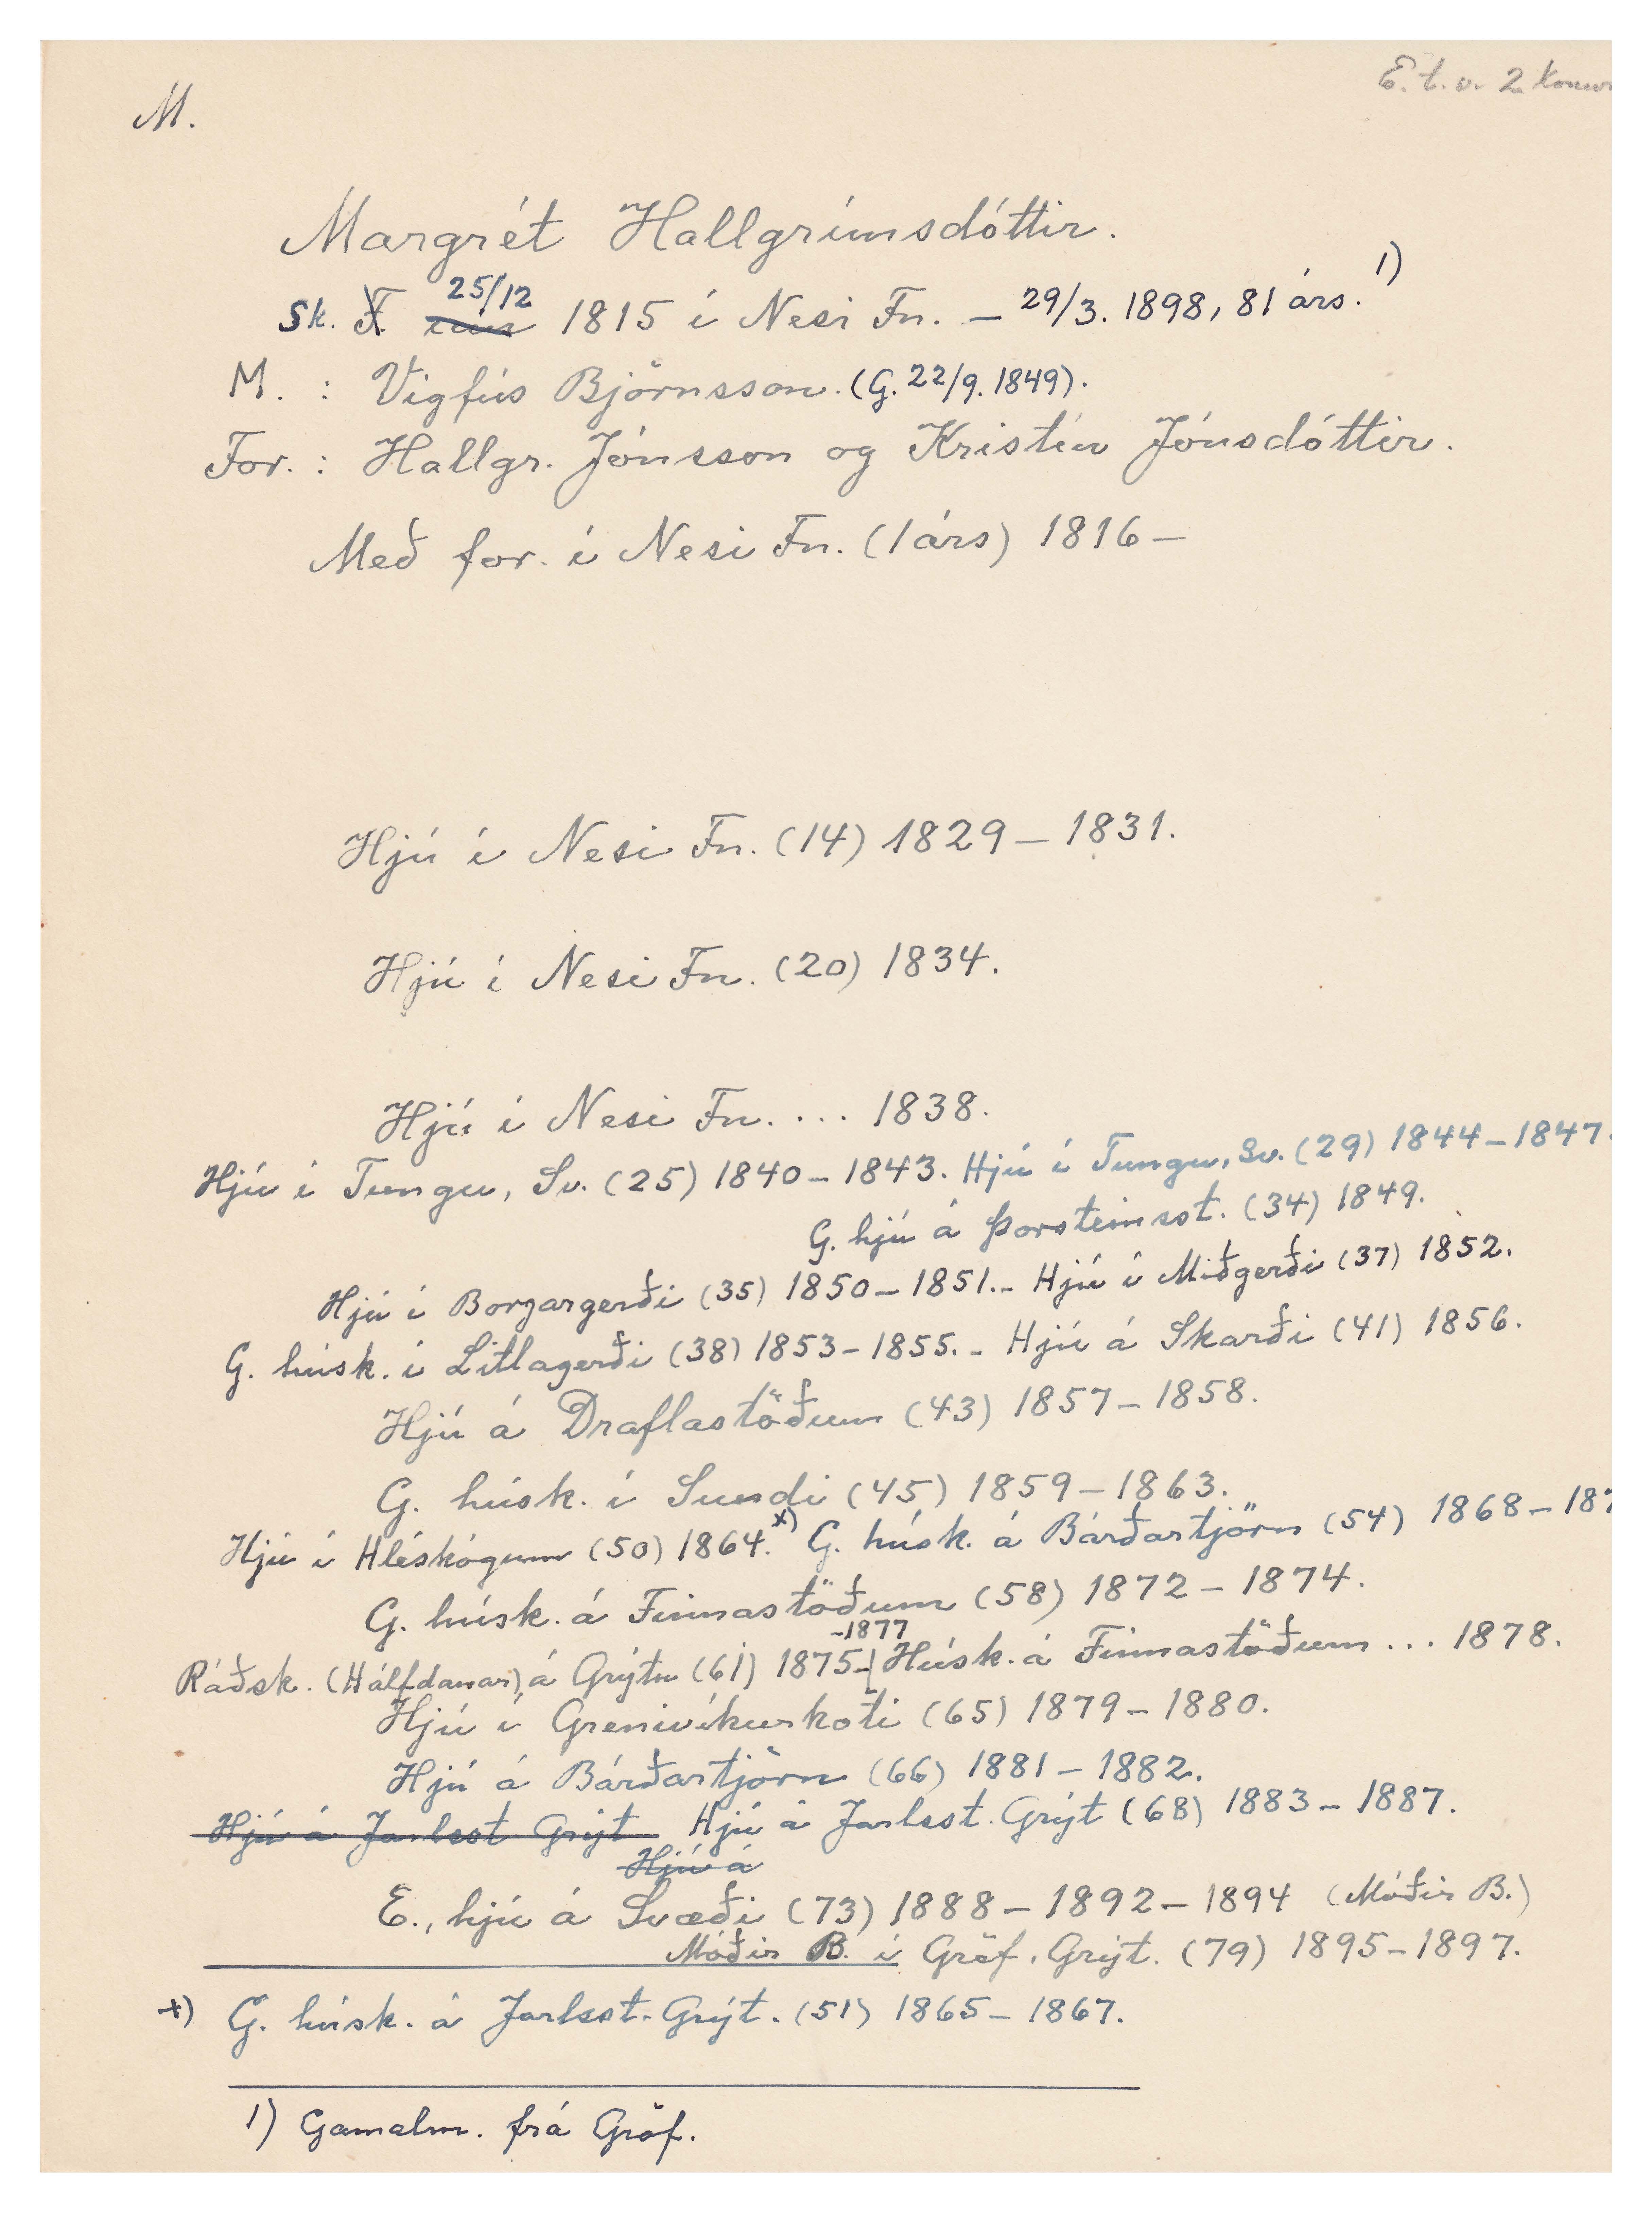 M.
E. t. v. 2 konur
Margrét Hallgrímsdóttir.
Sk. F. 25/12 1815 í Nesi Fn. – 29/3. 1898, 81 árs. 1)
M. : Vigfús Björnsson. (G. 22/9. 1849).
For. : Hallgr. Jónsson og Kristín Jónsdóttir.
Með for. í Nesi Fn. (1 árs) 1816 –
Hjú í Nesi Fn. (14) 1829 – 1831.
Hjú í Nesi Fn. (20) 1834.
Hjú í Nesi Fn. ... 1838.
Hjú í Tungu, Sv. (25) 1840 – 1843. Hjú í Tungu, Sv. (29) 1844 – 1847.
G. hjú á Þorsteinsst. (34) 1849.
Hjú í Borgargerði (35) 1850 – 1851. – Hjú í Miðgerði (37) 1852.
G. húsk. í Litlagerði (38) 1853 – 1855. – Hjú á Skarði (41) 1856.
Hjú á Draflastöðum (43) 1857 – 1858.
G. húsk. í Sundi (45) 1859 – 1863.
Hjú í Hléskógum (50) 1864. x) G. húsk. á Bárðartjörn (54) 1868 – 187
G. húsk. á Finnastöðum (58) 1872 – 1874.
Ráðsk. (Hálfdanar) á Grýtu (61) 1875 – 1877 | Húsk. á Finnastöðum ... 1878.
Hjú í Grenivíkurkoti (65) 1879 – 1880.
Hjú á Bárðartjörn (66) 1881 – 1882.
Hjú á Jarlsst Grýt Hjú á Jarlsst. Grýt (68) 1883 – 1887.
Hjú á
E., hjú á Svæði (73) 1888 – 1892 – 1894 (Móðir B.)
Móðir B. í Gröf, Grýt. (79) 1895 – 1897.
x) G. húsk. á Jarlsst. Grýt. (51) 1865 – 1867.
1) Gamalm. frá Gröf.